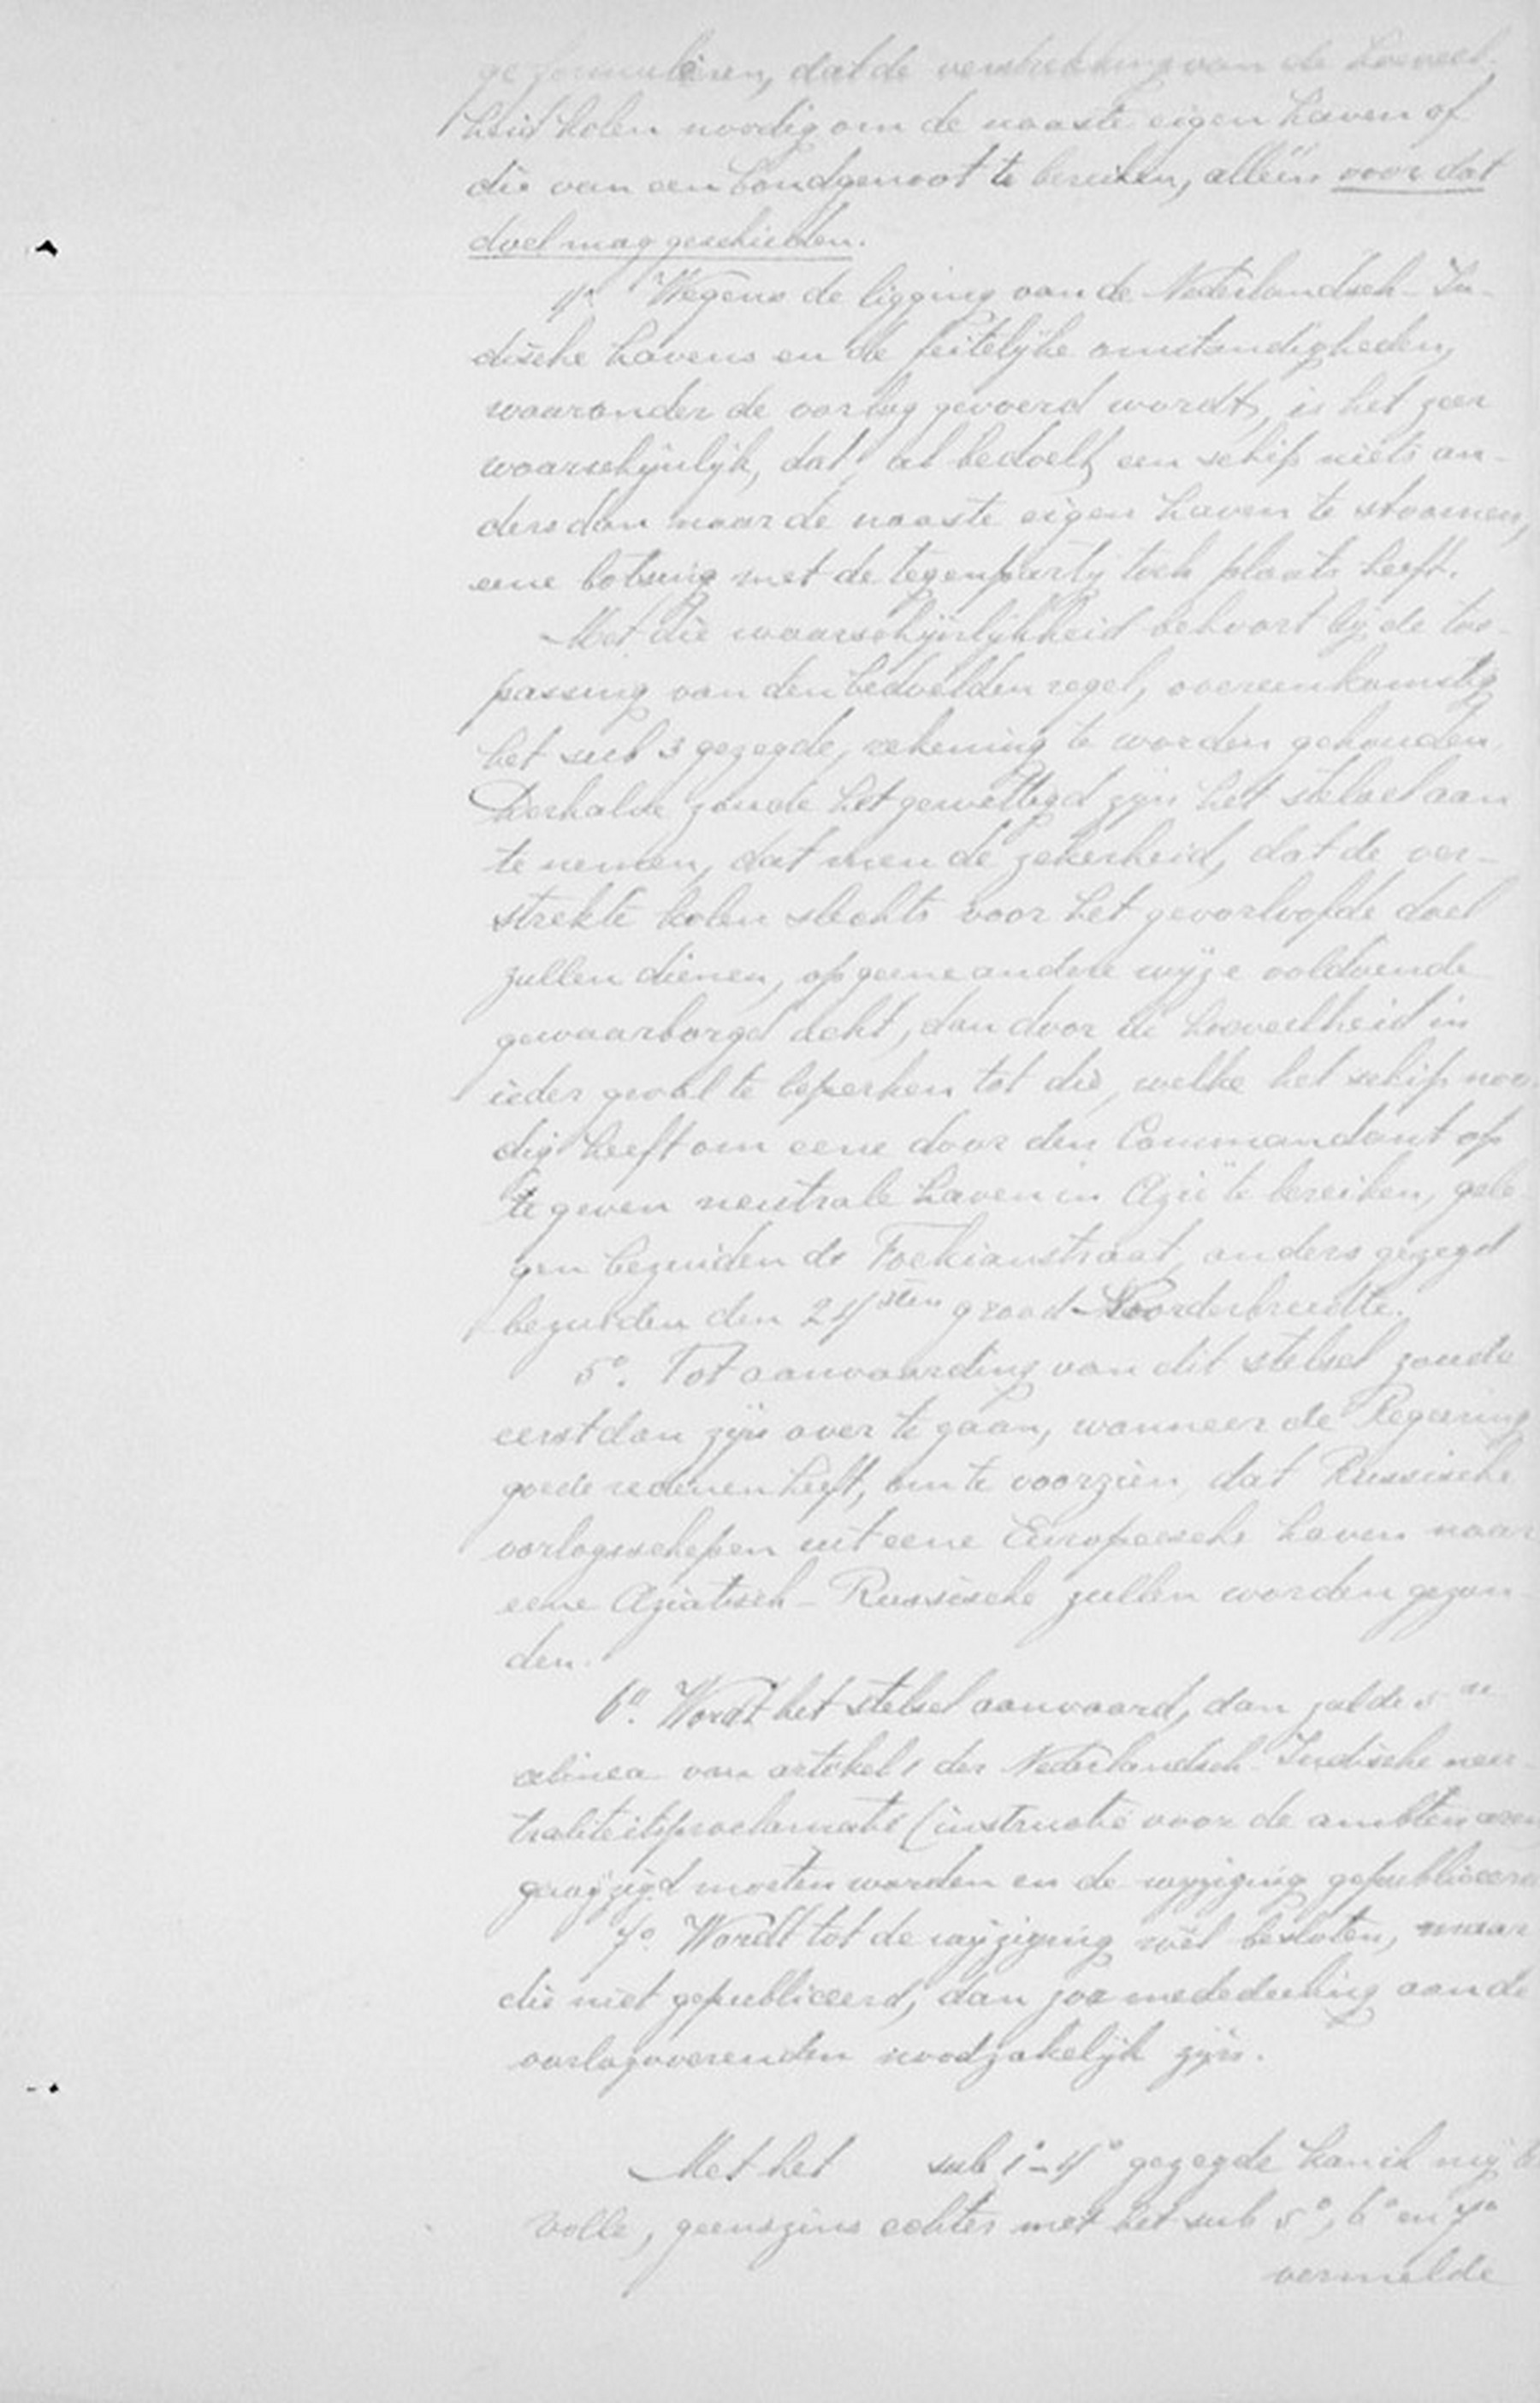 te formuleren, dat de verstrekking van de hoeveel-
heid kolen noodig om de naaste eigen haven of
die van een bondgenoot te bereiken, alléén voor dat
doel mag geschieden.
4º. Wegens de ligging van de Nederlandsch-In-
dische havens en de feitelijke omstandigheden,
waaronder de oorlog gevoerd wordt, is het zeer
waarschijnlijk, dat, al bedoelt een schip niets an-
ders dan naar de naaste eigen haven te stoomen,
eene botsing met de tegenpartij toch plaats heeft.
Met die waarschijnlijkheid behoort bij de toe-
passing van den bedoelden regel, overeenkomstig
het sub 3 gezegde, rekening te worden gehouden.
Derhalve zoude het gewettigd zijn het stelsel aan
te nemen, dat men de zekerheid, dat de ver-
strekte kolen slechts voor het geoorloofde doel
zullen dienen, op geene andere wijze voldoende
gewaarborgd acht, dan door de hoeveelheid in
ieder geval te beperken tot die, welke het schip noo
dig heeft om eene door den Commandant op
te geven neutrale haven in Azië te bereiken, gele
gen bezuiden de Fokianstraat, anders gezegd
bezuiden den 24sten graad Noorderbreedte.
5º. Tot aanvaarding van dit stelsel zoude
eerst dan zijn over te gaan, wanneer de Regeering
goede redenen heeft, om te voorzien, dat Russische
oorlogsschepen uit eene Europeesche haven naar
eene Aziatisch-Russische zullen worden gezon-
den.
6º. Wordt het stelsel aanvaard, dan zal de 5de
alinea van artikel 1 der Nederlandsch Indische neu-
traliteitsproclamatie (instructie voor de ambtenaren
gewijzigd moeten worden en de wijziging gepubliceerd
7º. Wordt tot de wijziging wèl besloten, maar
die niet gepubliceerd, dan zou mededeeling aan de
oorlogvoerenden noodzakelijk zijn.
Met het sub 1º-4º gezegde kan ik mij te
volle, geenszins echter met het sub 5º, 6º en 7º
vermelde